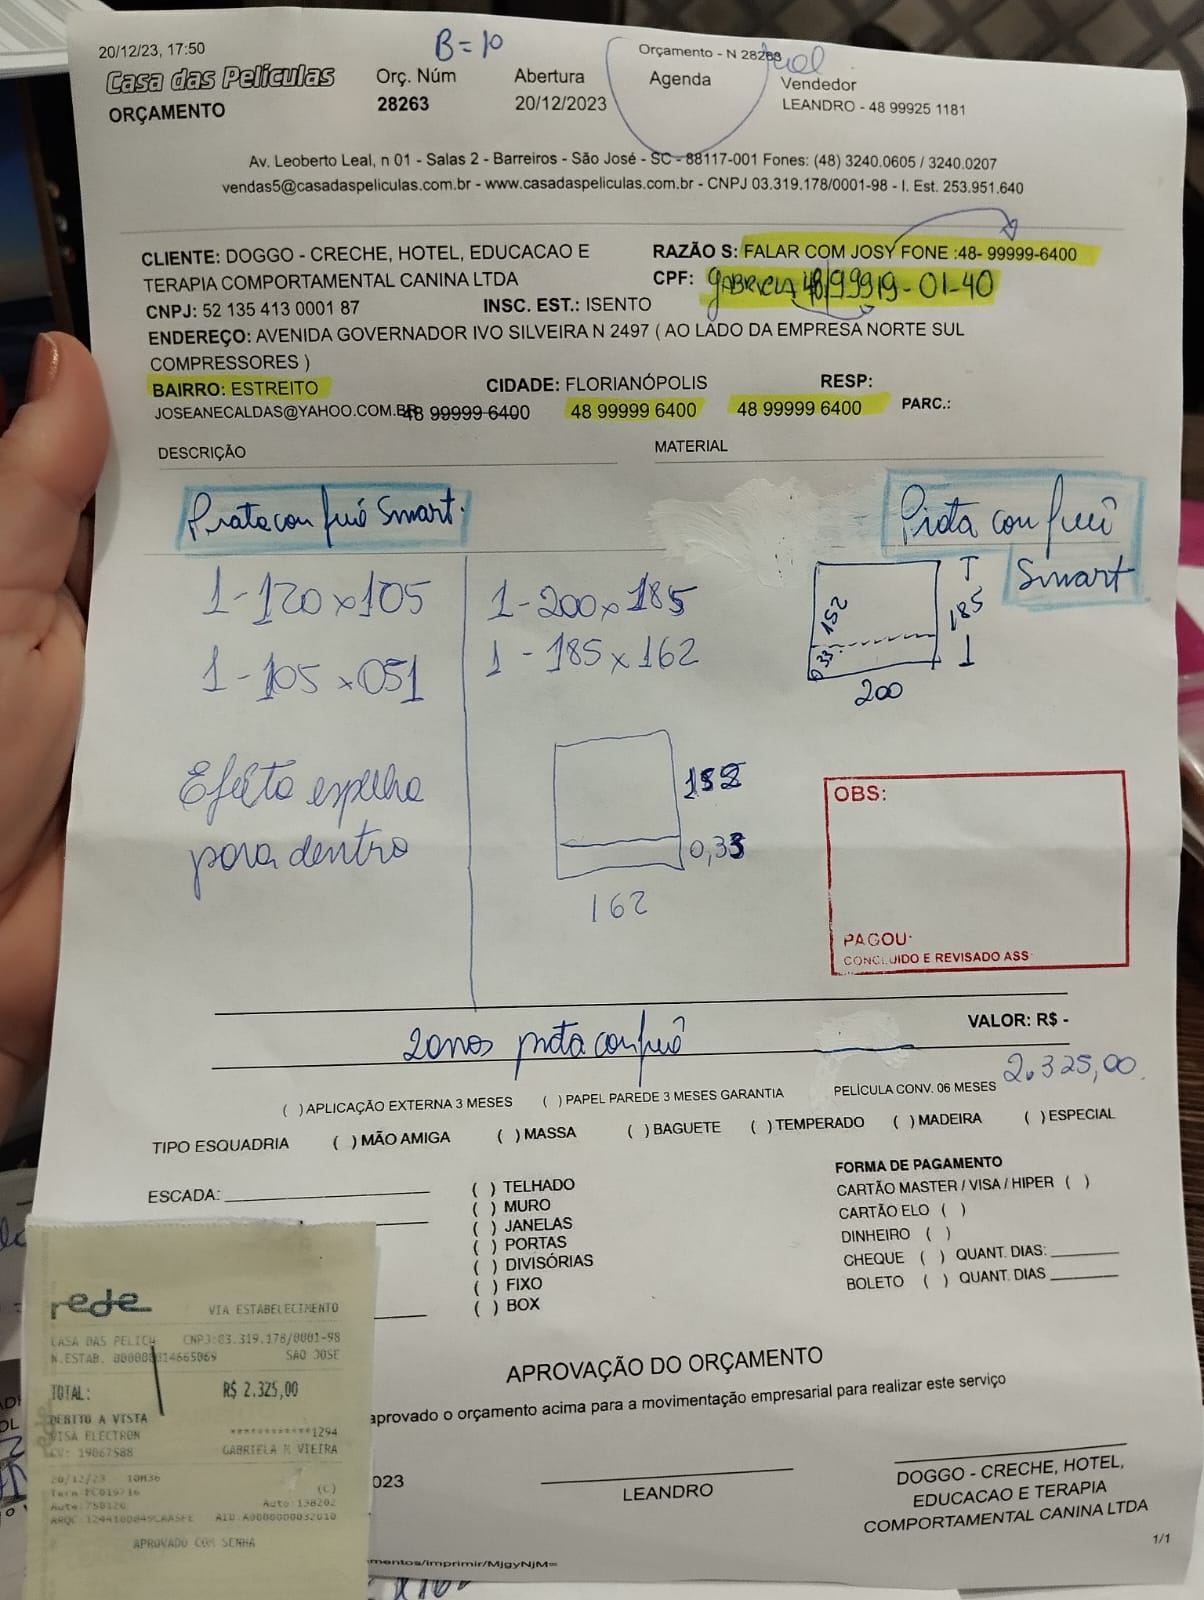 20/12/23, 17:50
B=10
Orçamento - N 28263
Casa das Películas
ORÇAMENTO
Orç. Núm
28263
Abertura
20/12/2023
Agenda
Vendedor
LEANDRO - 48 99925 1181
Av. Leoberto Leal, n 01 - Salas 2 - Barreiros - São José - SC - 88117-001 Fones: (48) 3240.0605 / 3240.0207
vendas5@casadaspeliculas.com.br - www.casadaspeliculas.com.br - CNPJ 03.319.178/0001-98 - I. Est. 253.951.640
CLIENTE: DOGGO - CRECHE, HOTEL, EDUCACAO E
TERAPIA COMPORTAMENTAL CANINA LTDA
RAZÃO S: FALAR COM JOSY FONE :48- 99999-6400
CPF: GABRIELA 48 99919-01-40
CNPJ: 52 135 413 0001 87
INSC. EST.: ISENTO
ENDEREÇO: AVENIDA GOVERNADOR IVO SILVEIRA N 2497 ( AO LADO DA EMPRESA NORTE SUL
COMPRESSORES )
BAIRRO: ESTREITO
CIDADE: FLORIANÓPOLIS
RESP:
JOSEANECALDAS@YAHOO.COM.BR 48 99999 6400
48 99999 6400
48 99999 6400
PARC.:
DESCRIÇÃO
MATERIAL
Prata con fumê Smart.
Prata con fumê
Smart
1-120x105
1-105x051
1-200x185
1-185x162
152
33
185
200
Efeito espelho
para dentro
152
0,33
162
OBS:
PAGOU:
CONCLUIDO E REVISADO ASS
2 anos prata con fumê
VALOR: R$ -
2.325,00
( ) APLICAÇÃO EXTERNA 3 MESES ( ) PAPEL PAREDE 3 MESES GARANTIA PELÍCULA CONV. 06 MESES
TIPO ESQUADRIA ( ) MÃO AMIGA ( ) MASSA ( ) BAGUETE ( ) TEMPERADO ( ) MADEIRA ( ) ESPECIAL
ESCADA:
( ) TELHADO
( ) MURO
( ) JANELAS
( ) PORTAS
( ) DIVISÓRIAS
( ) FIXO
( ) BOX
FORMA DE PAGAMENTO
CARTÃO MASTER / VISA / HIPER ( )
CARTÃO ELO ( )
DINHEIRO ( )
CHEQUE ( ) QUANT. DIAS:
BOLETO ( ) QUANT. DIAS
APROVAÇÃO DO ORÇAMENTO
aprovado o orçamento acima para a movimentação empresarial para realizar este serviço
023
LEANDRO
DOGGO - CRECHE, HOTEL,
EDUCACAO E TERAPIA
COMPORTAMENTAL CANINA LTDA
1/1
mentos/imprimir/MjgyNjM=
rede
VIA ESTABELECIMENTO
CASA DAS PELICU CNPJ:03.319.178/0001-98
N.ESTAB. 000000014665069 SAO JOSE
TOTAL: R$ 2.325,00
DEBITO A VISTA
VISA ELECTRON ************1294
CV: 19067588 GABRIELA M VIEIRA
20/12/23 10H36 (C)
Auto:138202
APROVADO COM SENHA